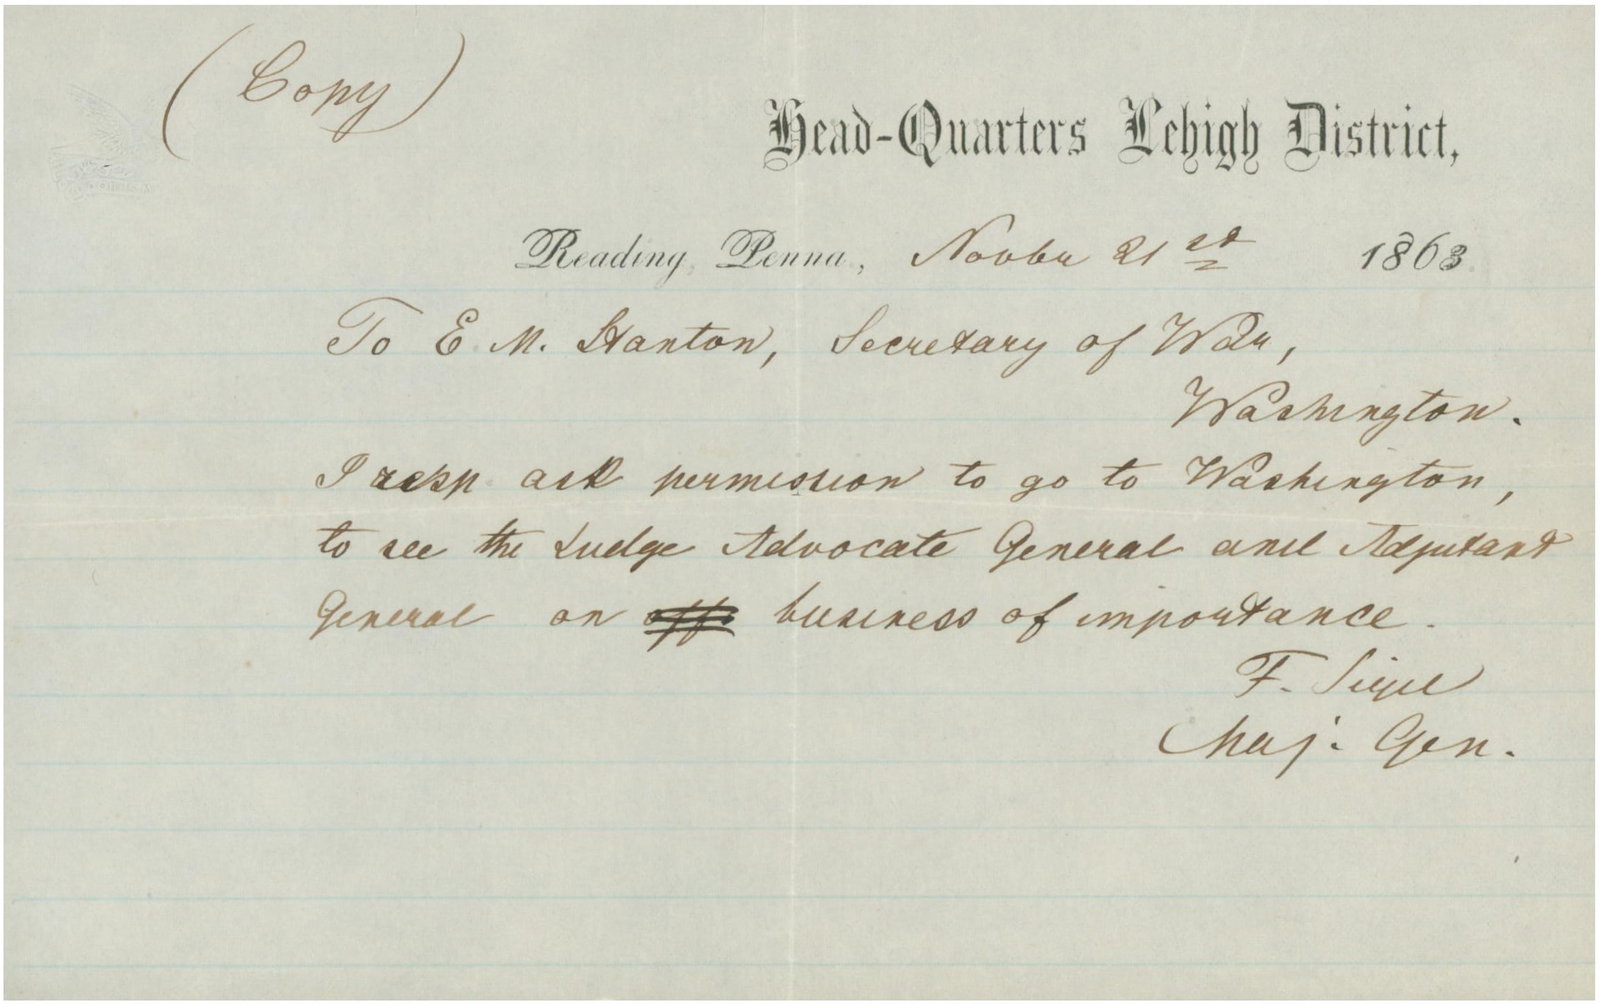 (Copy)
Head-Quarters Lehigh District,
Reading, Penna, Novbr 21st 1863.
To E. M. Stanton, Secretary of War,
Washington.
I resp ask permission to go to Washington,
to see the Judge Advocate General and Adjutant
General on business of importance.
F. Sigel
Maj. Gen.